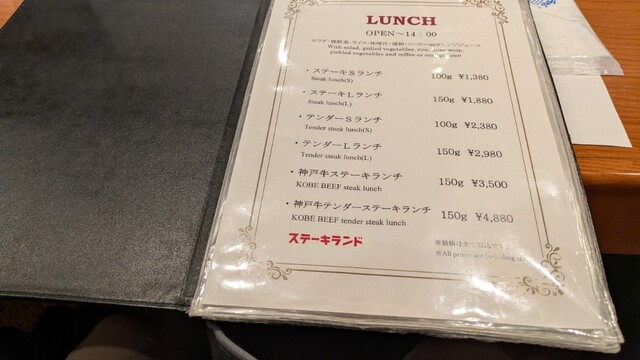 LUNCH
OPEN～14：00
サラダ・焼野菜・ライス・味噌汁・漬物・コーヒーorオレンジジュース
With salad, grilled vegetables, rice, miso soup,
pickled vegetables and coffee or orange juice
・ステーキＳランチ 100g ¥1,380
Steak lunch(S)
・ステーキＬランチ 150g ¥1,880
Steak lunch(L)
・テンダーＳランチ 100g ¥2,380
Tender steak lunch(S)
・テンダーＬランチ 150g ¥2,980
Tender steak lunch(L)
・神戸牛ステーキランチ 150g ¥3,500
KOBE BEEF steak lunch
・神戸牛テンダーステーキランチ 150g ¥4,880
KOBE BEEF tender steak lunch
ステーキランド
※価格は全て税込です
※All prices are including